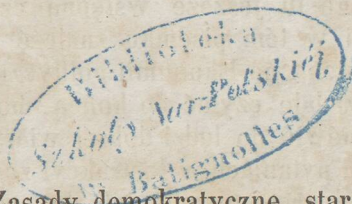 Biblioteka
Szkoły Nar-Polskiéj
w Batignolles
Zasady demokratyczne, star